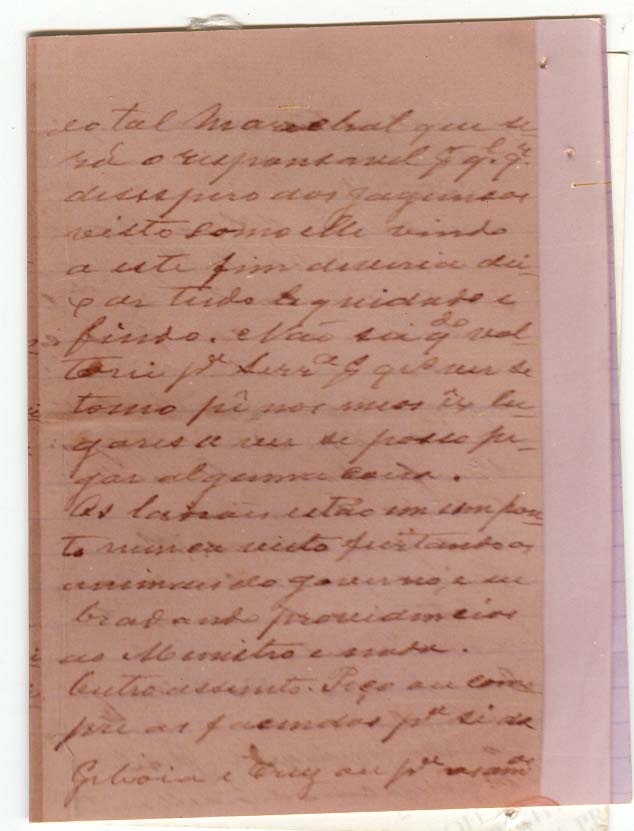 eo tal Marechal que se
rá o responsavel
desespero dos jagunsos
visto como elle vindo
a este fim deveria dei-
xar tudo liquidado e
findo. Não sei qdo vol
tarei pa Serra que ver se
tomo pé nos meos lu
gares a ver se posso pe-
gar alguma coisa.
Os estão um ponto
to nunca visto furtando os
animais do governo, e eu
bradando providencias
ao Ministro e nada.
Outro assunto. Peço ou com
pre as fasendas pa si da
Giboia e Cruz ou pa